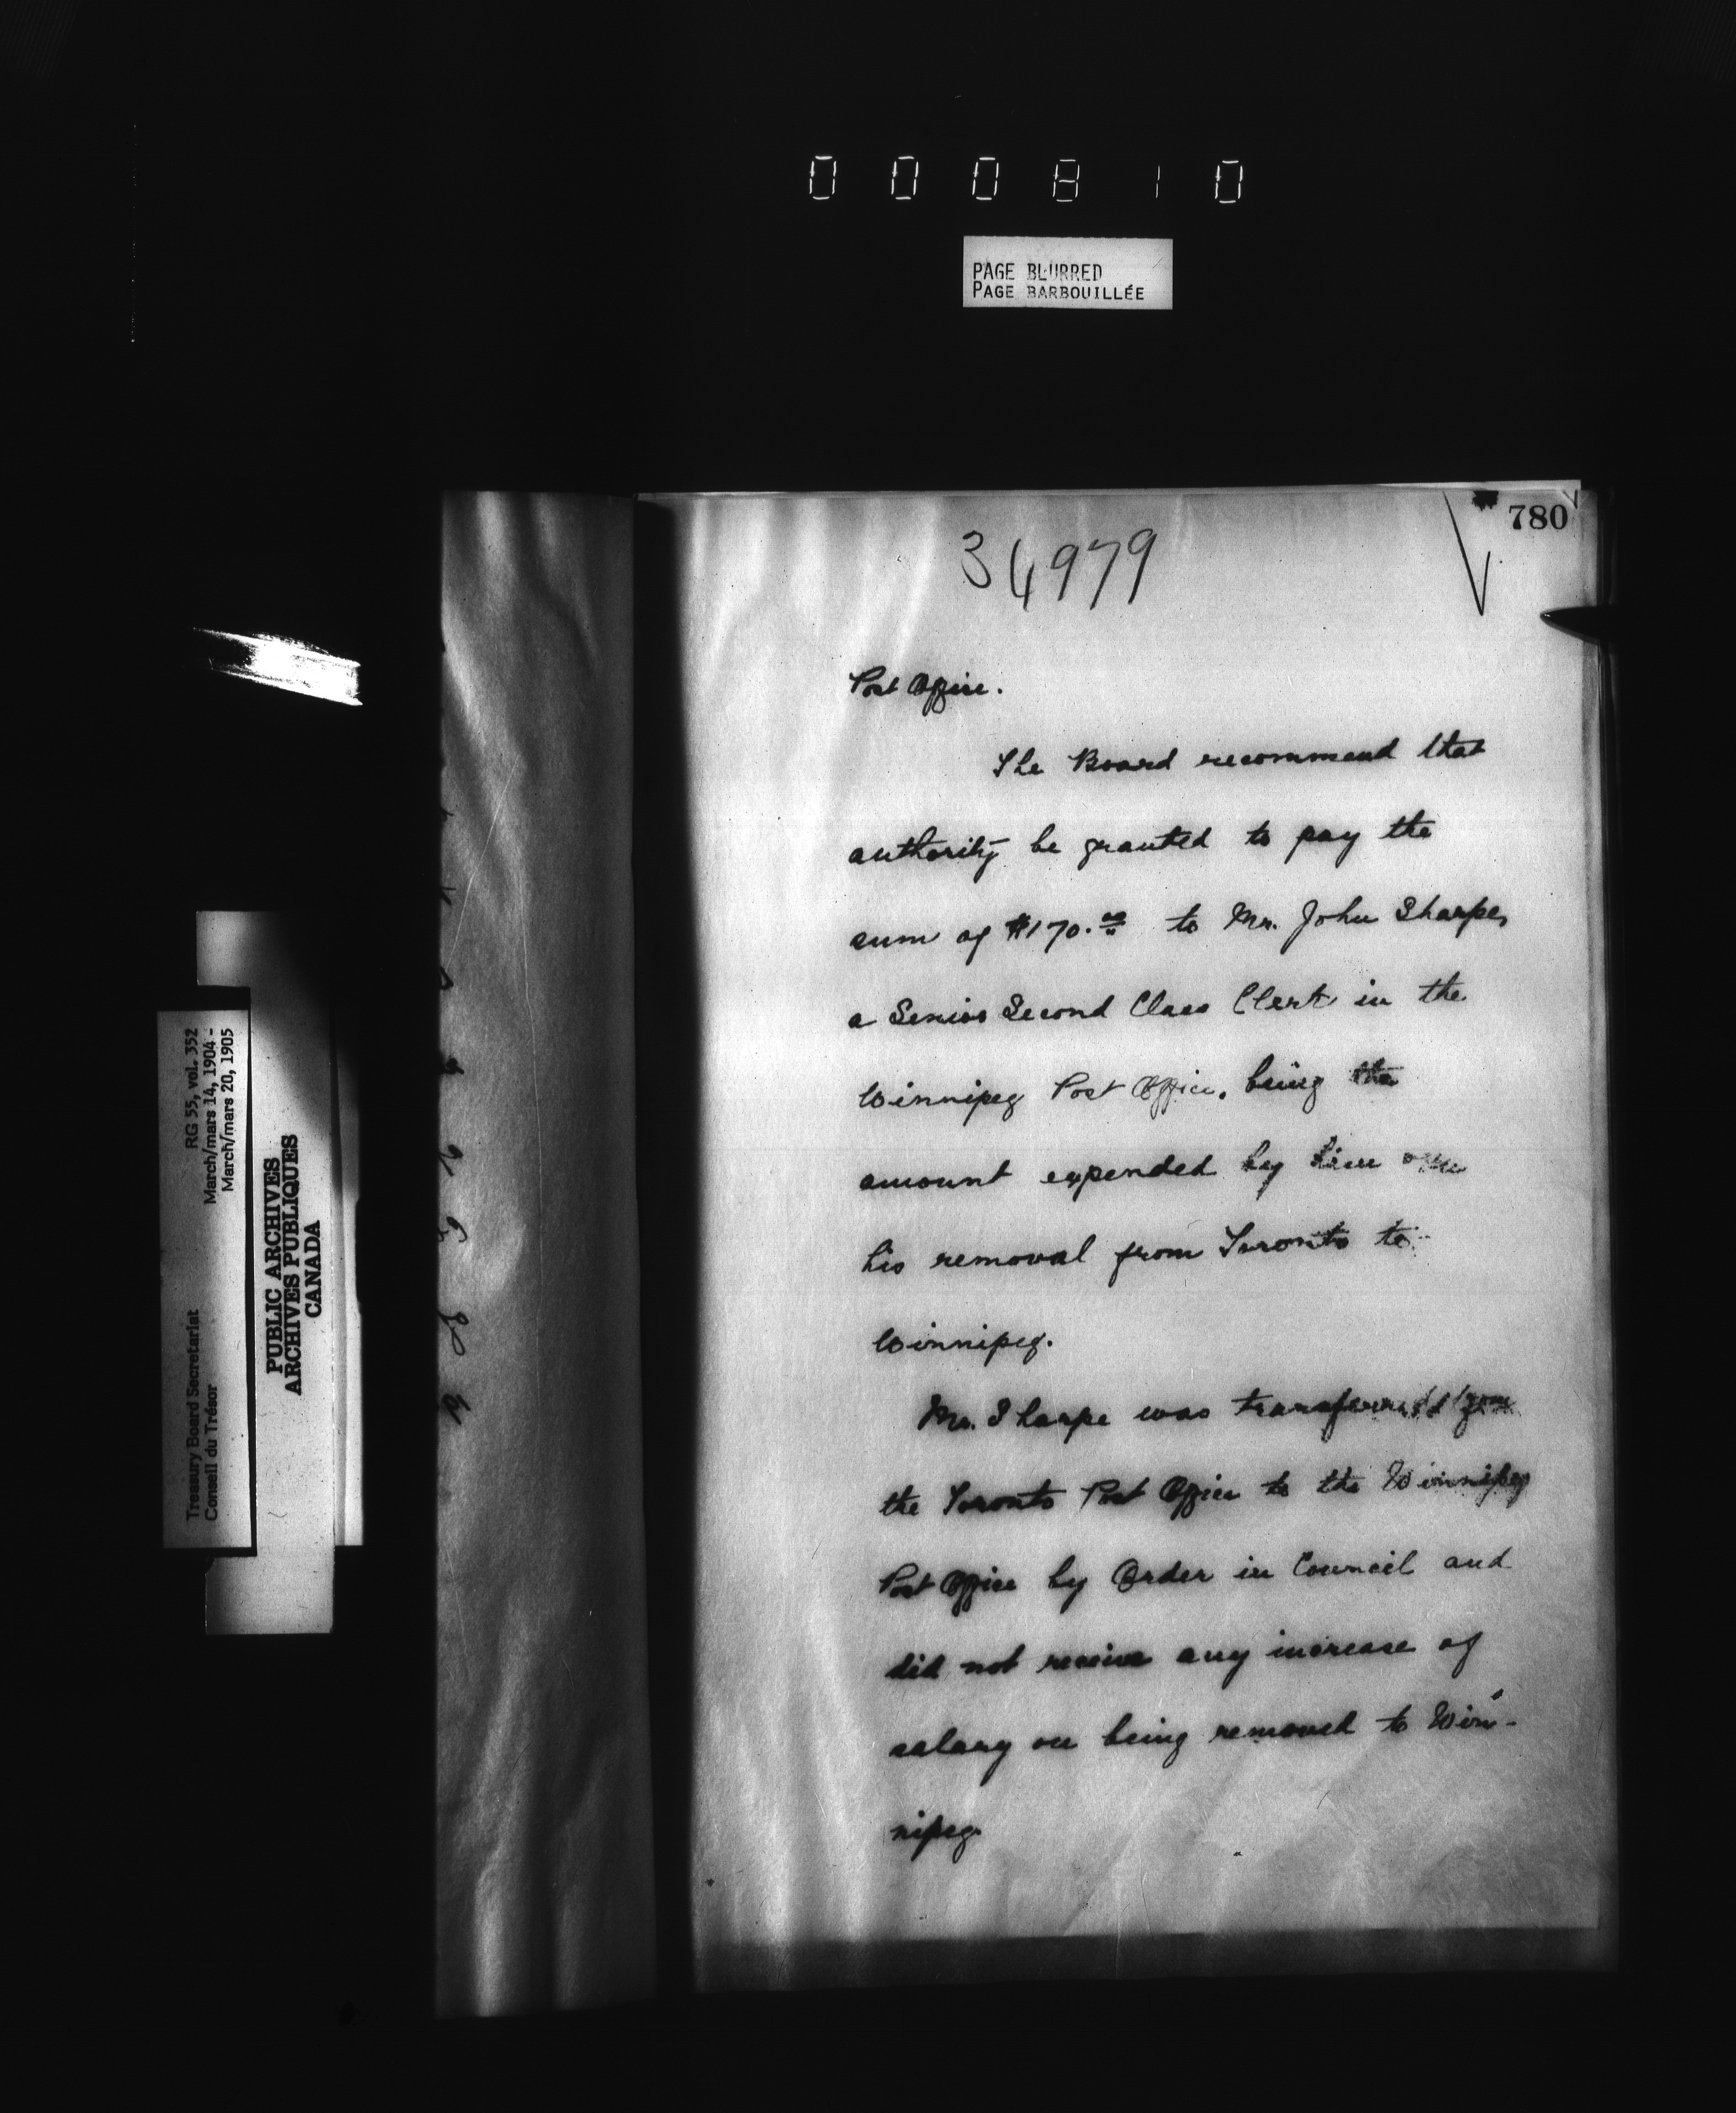 000810
PAGE BLURRED
PAGE BARBOUILLÉE
780
34979
Post Office.
The Board recommend that
authority be granted to pay the
sum of $170.00 to Mr. John Sharpe,
a Senior Second Class Clerk in the
Winnipeg Post Office, being the
amount expended by him on
his removal from Toronto to
Winnipeg.
Mr. Sharpe was transferred from
the Toronto Post Office to the Winnipeg
Post Office by Order in Council and
did not receive any increase of
salary on being removed to Win-
nipeg.
Treasury Board Secretariat RG 55, vol. 352
Conseil du Trésor March/mars 14, 1904 -
March/mars 20, 1905
PUBLIC ARCHIVES
ARCHIVES PUBLIQUES
CANADA